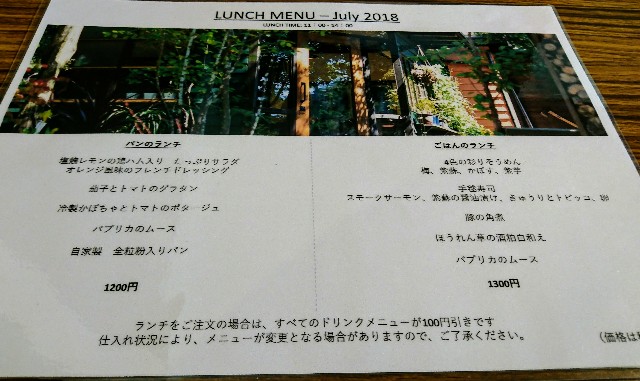 LUNCH MENU – July 2018
LUNCH TIME: 11:00 - 14:00
パンのランチ
塩麹レモンの鶏ハム入り たっぷりサラダ
オレンジ風味のフレンチドレッシング
茄子とトマトのグラタン
冷製かぼちゃとトマトのポタージュ
パプリカのムース
自家製 全粒粉入りパン
1200円
ごはんのランチ
4色の彩りそうめん
梅、紫蘇、かぼす、
手毬寿司
スモークサーモン、紫蘇の醤油漬け、きゅうりとトビッコ、卵
豚の角煮
ほうれん草の酒粕白和え
パプリカのムース
1300円
ランチをご注文の場合は、すべてのドリンクメニューが100円引きです
仕入れ状況により、メニューが変更となる場合がありますので、ご了承ください。
(価格は